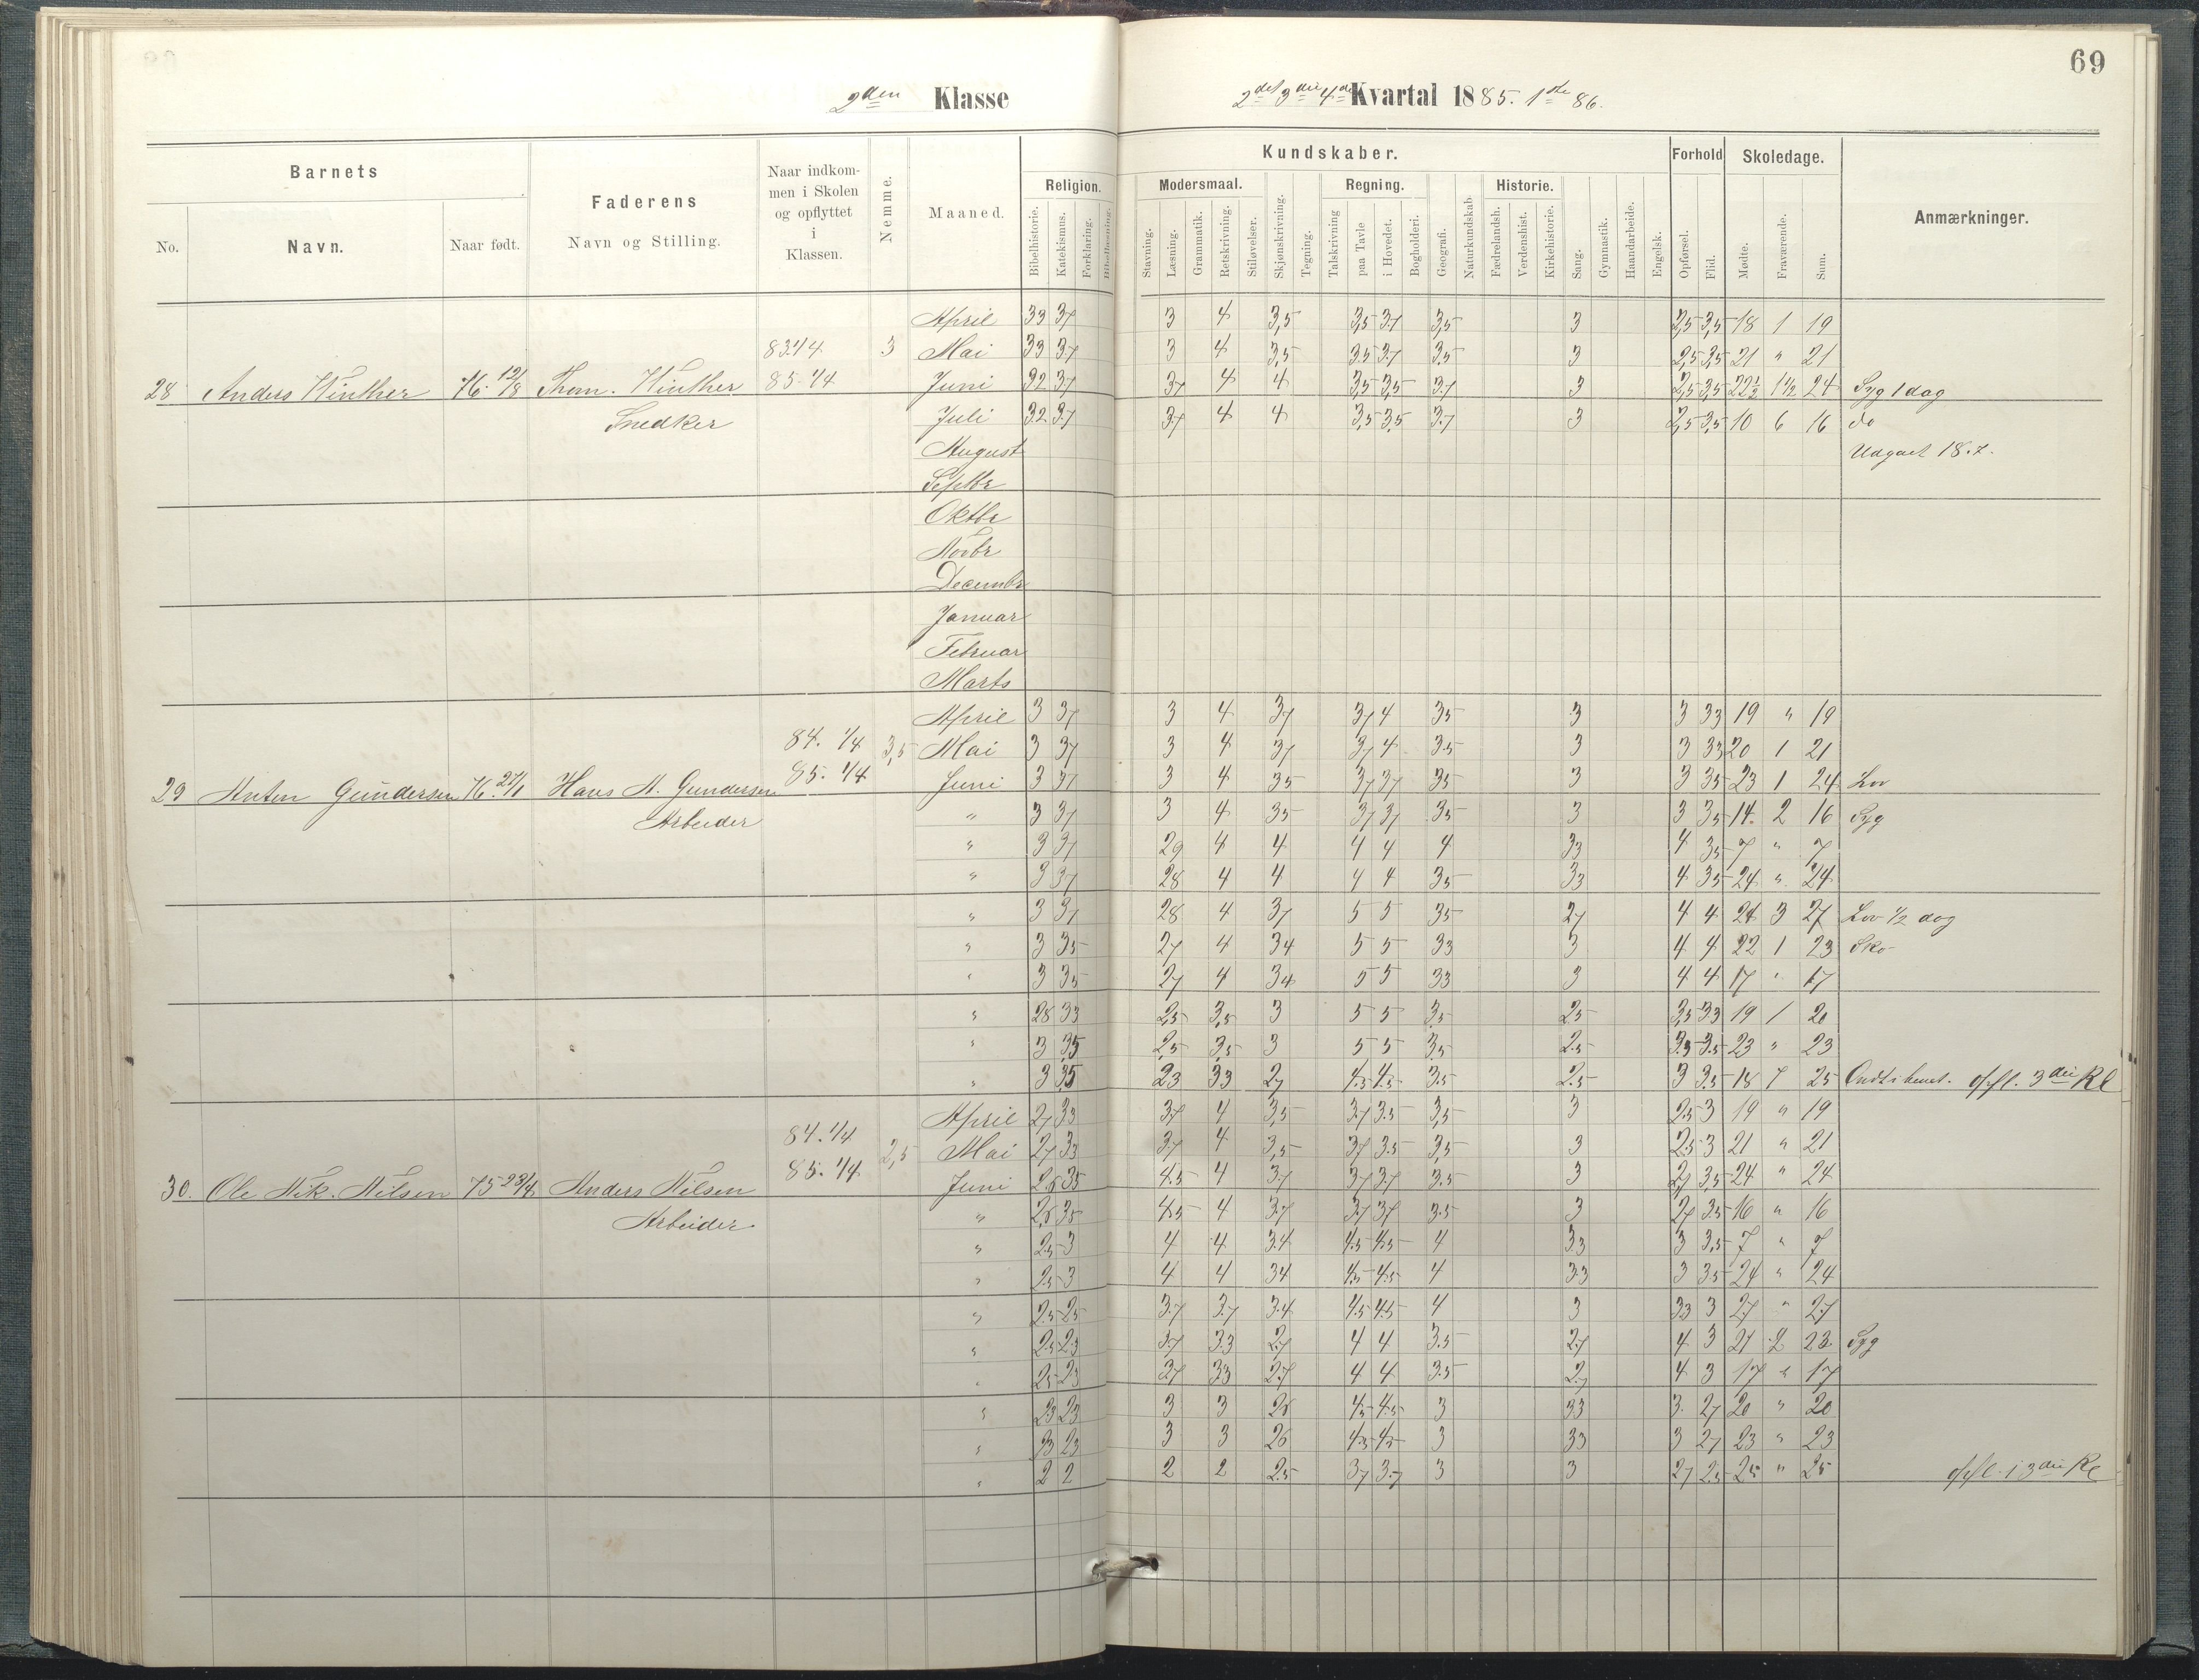 69
2den Klasse
2det 3die 4de Kvartal 1885. 1ste 86.
Barnets
Faderens
Naar indkommen i Skolen og opflyttet i Klassen.
Nemme.
Maaned.
Religion.
Kundskaber.
Modersmaal.
Regning.
Historie.
Forhold
Skoledage.
Anmærkninger.
No.
Navn.
Naar født.
Navn og Stilling.
Bibelhistorie.
Katekismus.
Forklaring.
Bibellæsning.
Stavning.
Læsning.
Grammatik.
Retskrivning.
Stiløvelser.
Skjønskrivning.
Tegning.
Talskrivning
paa Tavle
i Hovedet.
Bogholderi.
Geografi.
Naturkundskab
Fædrelandsh.
Verdenshist.
Kirkehistorie.
Sang.
Gymnastik.
Haandarbeide.
Engelsk.
Opførsel.
Flid.
Mødte.
Fraværende.
Sum.
April 33 37 3 4 3,5 3,5 3.7 3,5 3 2,5 3,5 18 1 19
83 1/4 3 Mai 33 37 3 4 3,5 3.5 3.7 3.5 3 2,5 3,5 21 " 21
28 Anders Winther 76. 12/8 Thom. Winther 85 1/4 Juni 32 37 37 4 4 3,5 3,5 3.7 3 2,5 3,5 22½ 1½ 24 Syg 1 dag
Snedker Juli 32 37 3.7 4 4 3,5 3,5 3.7 3 2,5 3,5 10 6 16 do
August Udgaaet 18.7.
Septbr
Oktbr
Novbr
Decembr
Januar
Februar
Marts
April 3 37 3 4 37 37 4 35 3 3 33 19 " 19
84. 1/4 3,5 Mai 3 37 3 4 37 37 4 3.5 3 3 33 20 1 21
29 Anton Gundersen 76. 27/1 Hans A. Gundersen 85. 1/4 Juni 3 37 3 4 35 37 37 35 3 3 35 23 1 24 Lov
Arbeider " 3 37 3 4 35 37 37 35 3 3 35 14 2 16 Syg
" 3 37 29 4 4 4 4 4 33 4 35 7 " 7
" 3 37 28 4 4 4 4 35 33 4 35 24 " 24
" 3 37 28 4 37 5 5 35 27 4 4 24 3 27 Lov 1/2 dag
" 3 35 27 4 34 5 5 33 3 4 4 22 1 23 Sko
" 3 35 27 4 34 5 5 33 3 4 4 17 " 17
" 28 33 2,5 3,5 3 5 5 3,5 25 3,5 33 19 1 20
" 3 35 2,5 3,5 3 5 5 3,5 2.5 3.5 3.5 23 " 23
" 3 35 23 33 27 4.5 4.5 3.5 2.5 3 3.5 18 7 25 Ondt i benet. opfl. 3die Kl
April 27 33 37 4 3,5 3.7 3.5 3,5 3 2.5 3 19 " 19
84. 1/4 2,5 Mai 27 33 37 4 3,5 37 3.5 3,5 3 2.5 3 21 " 21
30. Ole Nik. Nilsen 75 23/4 Anders Nilsen 85. 1/4 Juni 2.5 35 4.5 4 3.7 37 37 3.5 3 27 3,5 24 " 24
Arbeider. " 2,5 35 4.5 4 3.7 37 37 3.5 3 27 3.5 16 " 16
" 2.5 3 4 4 3.4 4.5 4.5 4 33 3 3,5 7 " 7
" 2.5 3 4 4 34 4.5 4.5 4 33 3 3.5 24 " 24
" 2.5 2.5 3.7 3.7 3.4 4.5 4.5 4 3 33 3 27 " 27
" 2.5 23 37 3.3 27 4 4 3.5 27 4 3 21 2 23 Syg
" 25 23 37 33 27 4 4 3.5 27 4 3 17 " 17
" 23 23 3 3 26 4.5 4.5 3 33 3 27 20 " 20
" 23 23 3 3 26 4.5 4.5 3 33 3 27 23 " 23
" 2 2 2 2 2.5 37 3.7 3 3 27 2.5 25 " 25 opfl. i 3die Kl